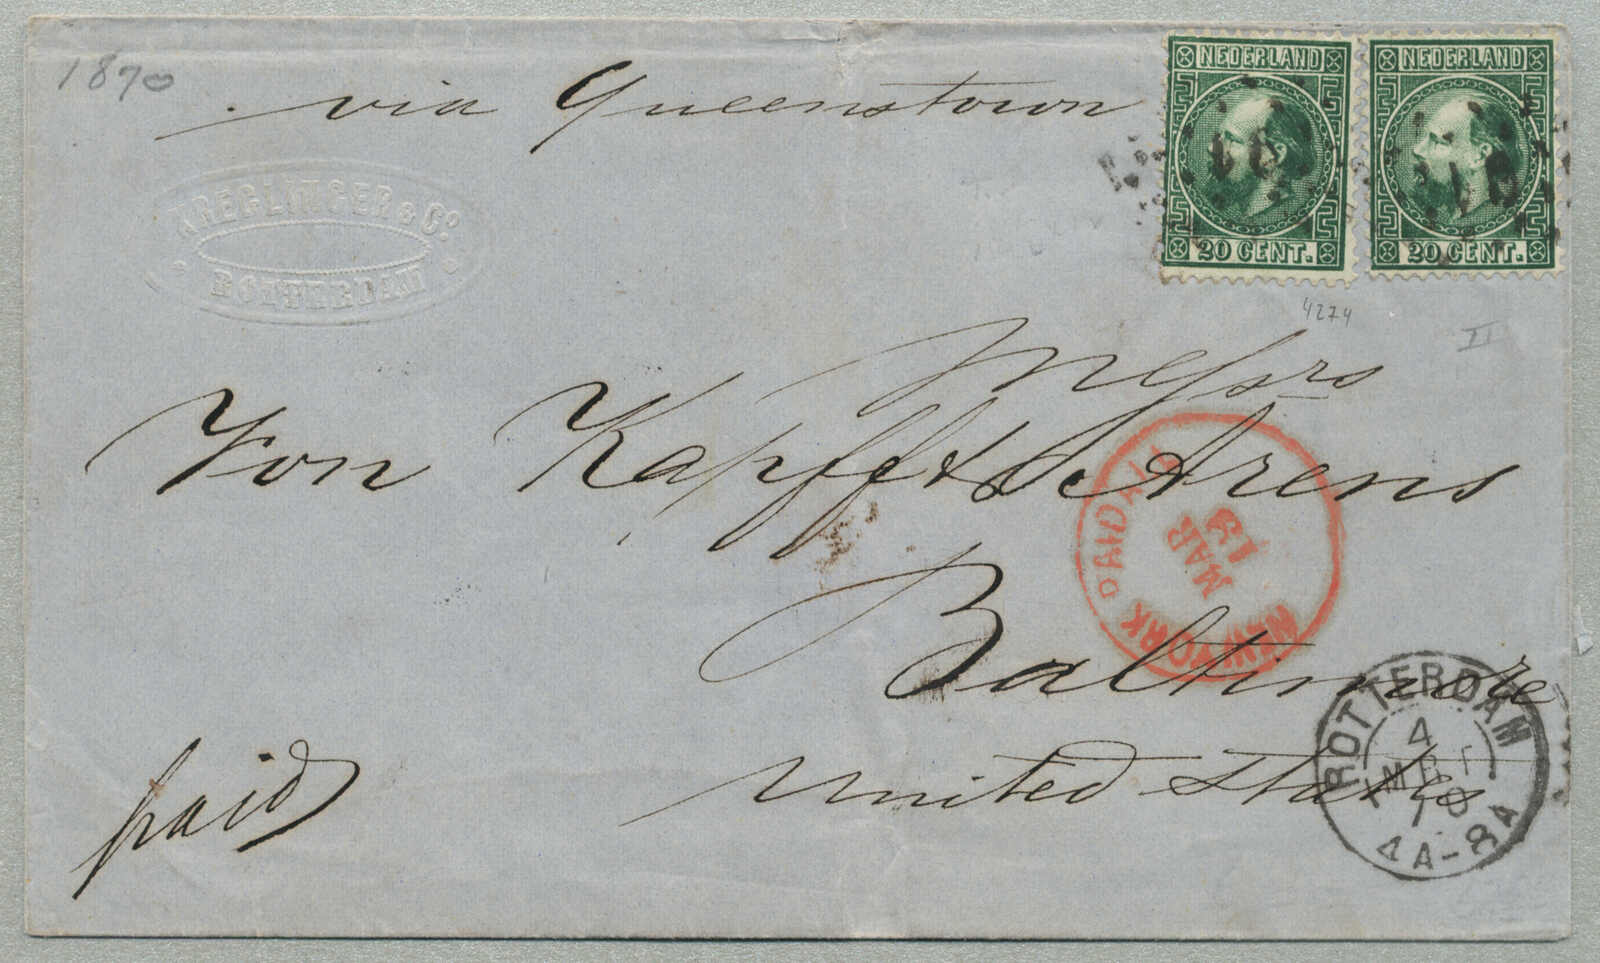 1870
via Queenstown
NEDERLAND
20 CENT.
NEDERLAND
20 CENT.
KREGLINGER & Co.
ROTTERDAM
4274
II
Messrs
Von Kapff & Arens
Baltimore
United States
paid
NEW YORK PAID ALL
MAR
18
ROTTERDAM
4
MRT
70
4A-8A